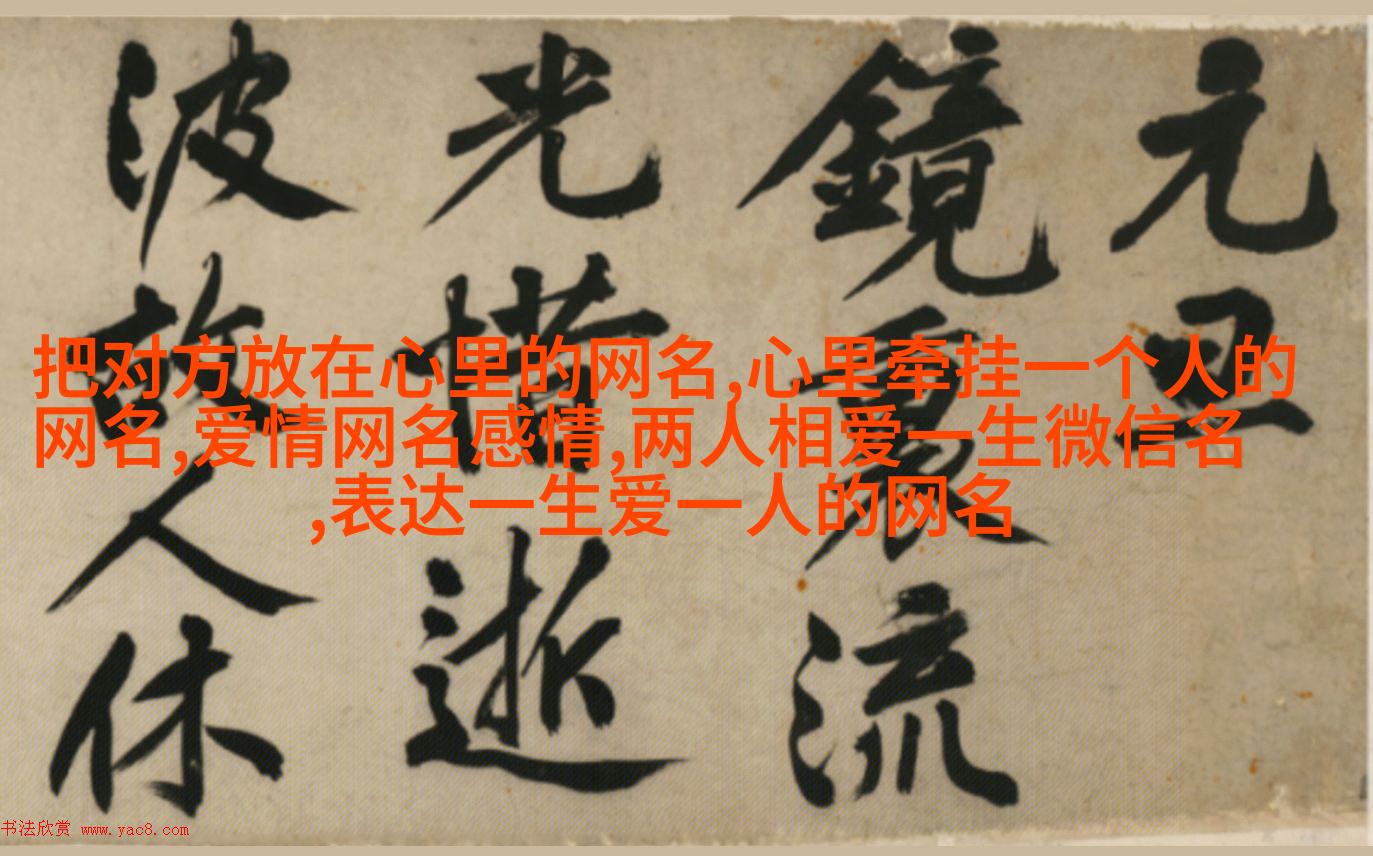 元旦
鏡裏流
光惜逝
波故人休
把对方放在心里的网名,心里牵挂一个人的
网名,爱情网名感情,两人相爱一生微信名
,表达一生爱一人的网名
书法欣赏 www.yac8.com